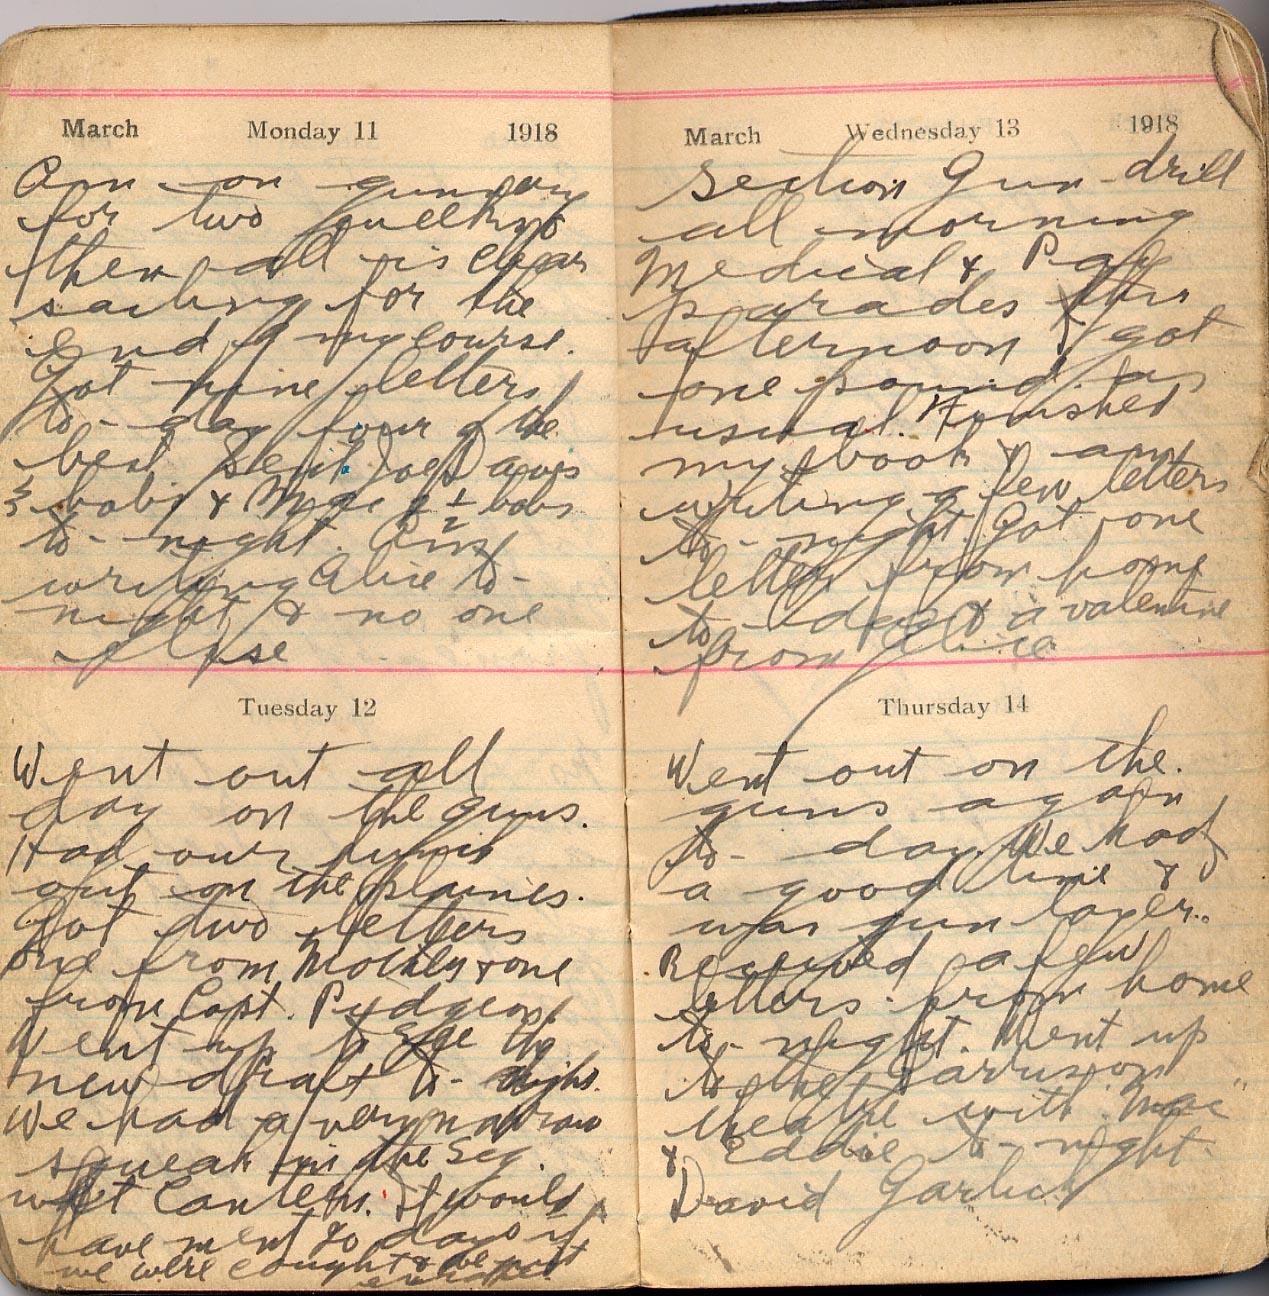 March Monday 11 1918
Am on
for two
then all is clear
sailing for the
end of my course.
Got nine letters
to-day four of the
best. Sent Joe Daves
3 bobs & Mac 2 1/2 bobs
to-night. Am
writing Alice to-
night & no one
else
Tuesday 12
Went out all
day on the guns.
Had our
out on the plaines.
Got two letters
one from Mother & one
from Capt. Pudgeon.
Went up to see the
new draft to-night.
We had a very narrow
squeak in the Seg.
wet Canteen. It would
have ment 20 days if
we were cought & we
March Wednesday 13 1918
Section Gun-drill
all morning
Medical & Pay
parades this
afternoon I got
one pound as
usual. Finished
my book & am
writing a few letters
to-night. Got one
letter from home
to-day & a valentine
from Alice
Thursday 14
Went out on the.
guns again
to-day. We had
a good time &
was gun layer..
Received a few
letters from home
to-night. Went up
to the Garrison
theatre with Mac
& Eddie to-night.
David Garlick